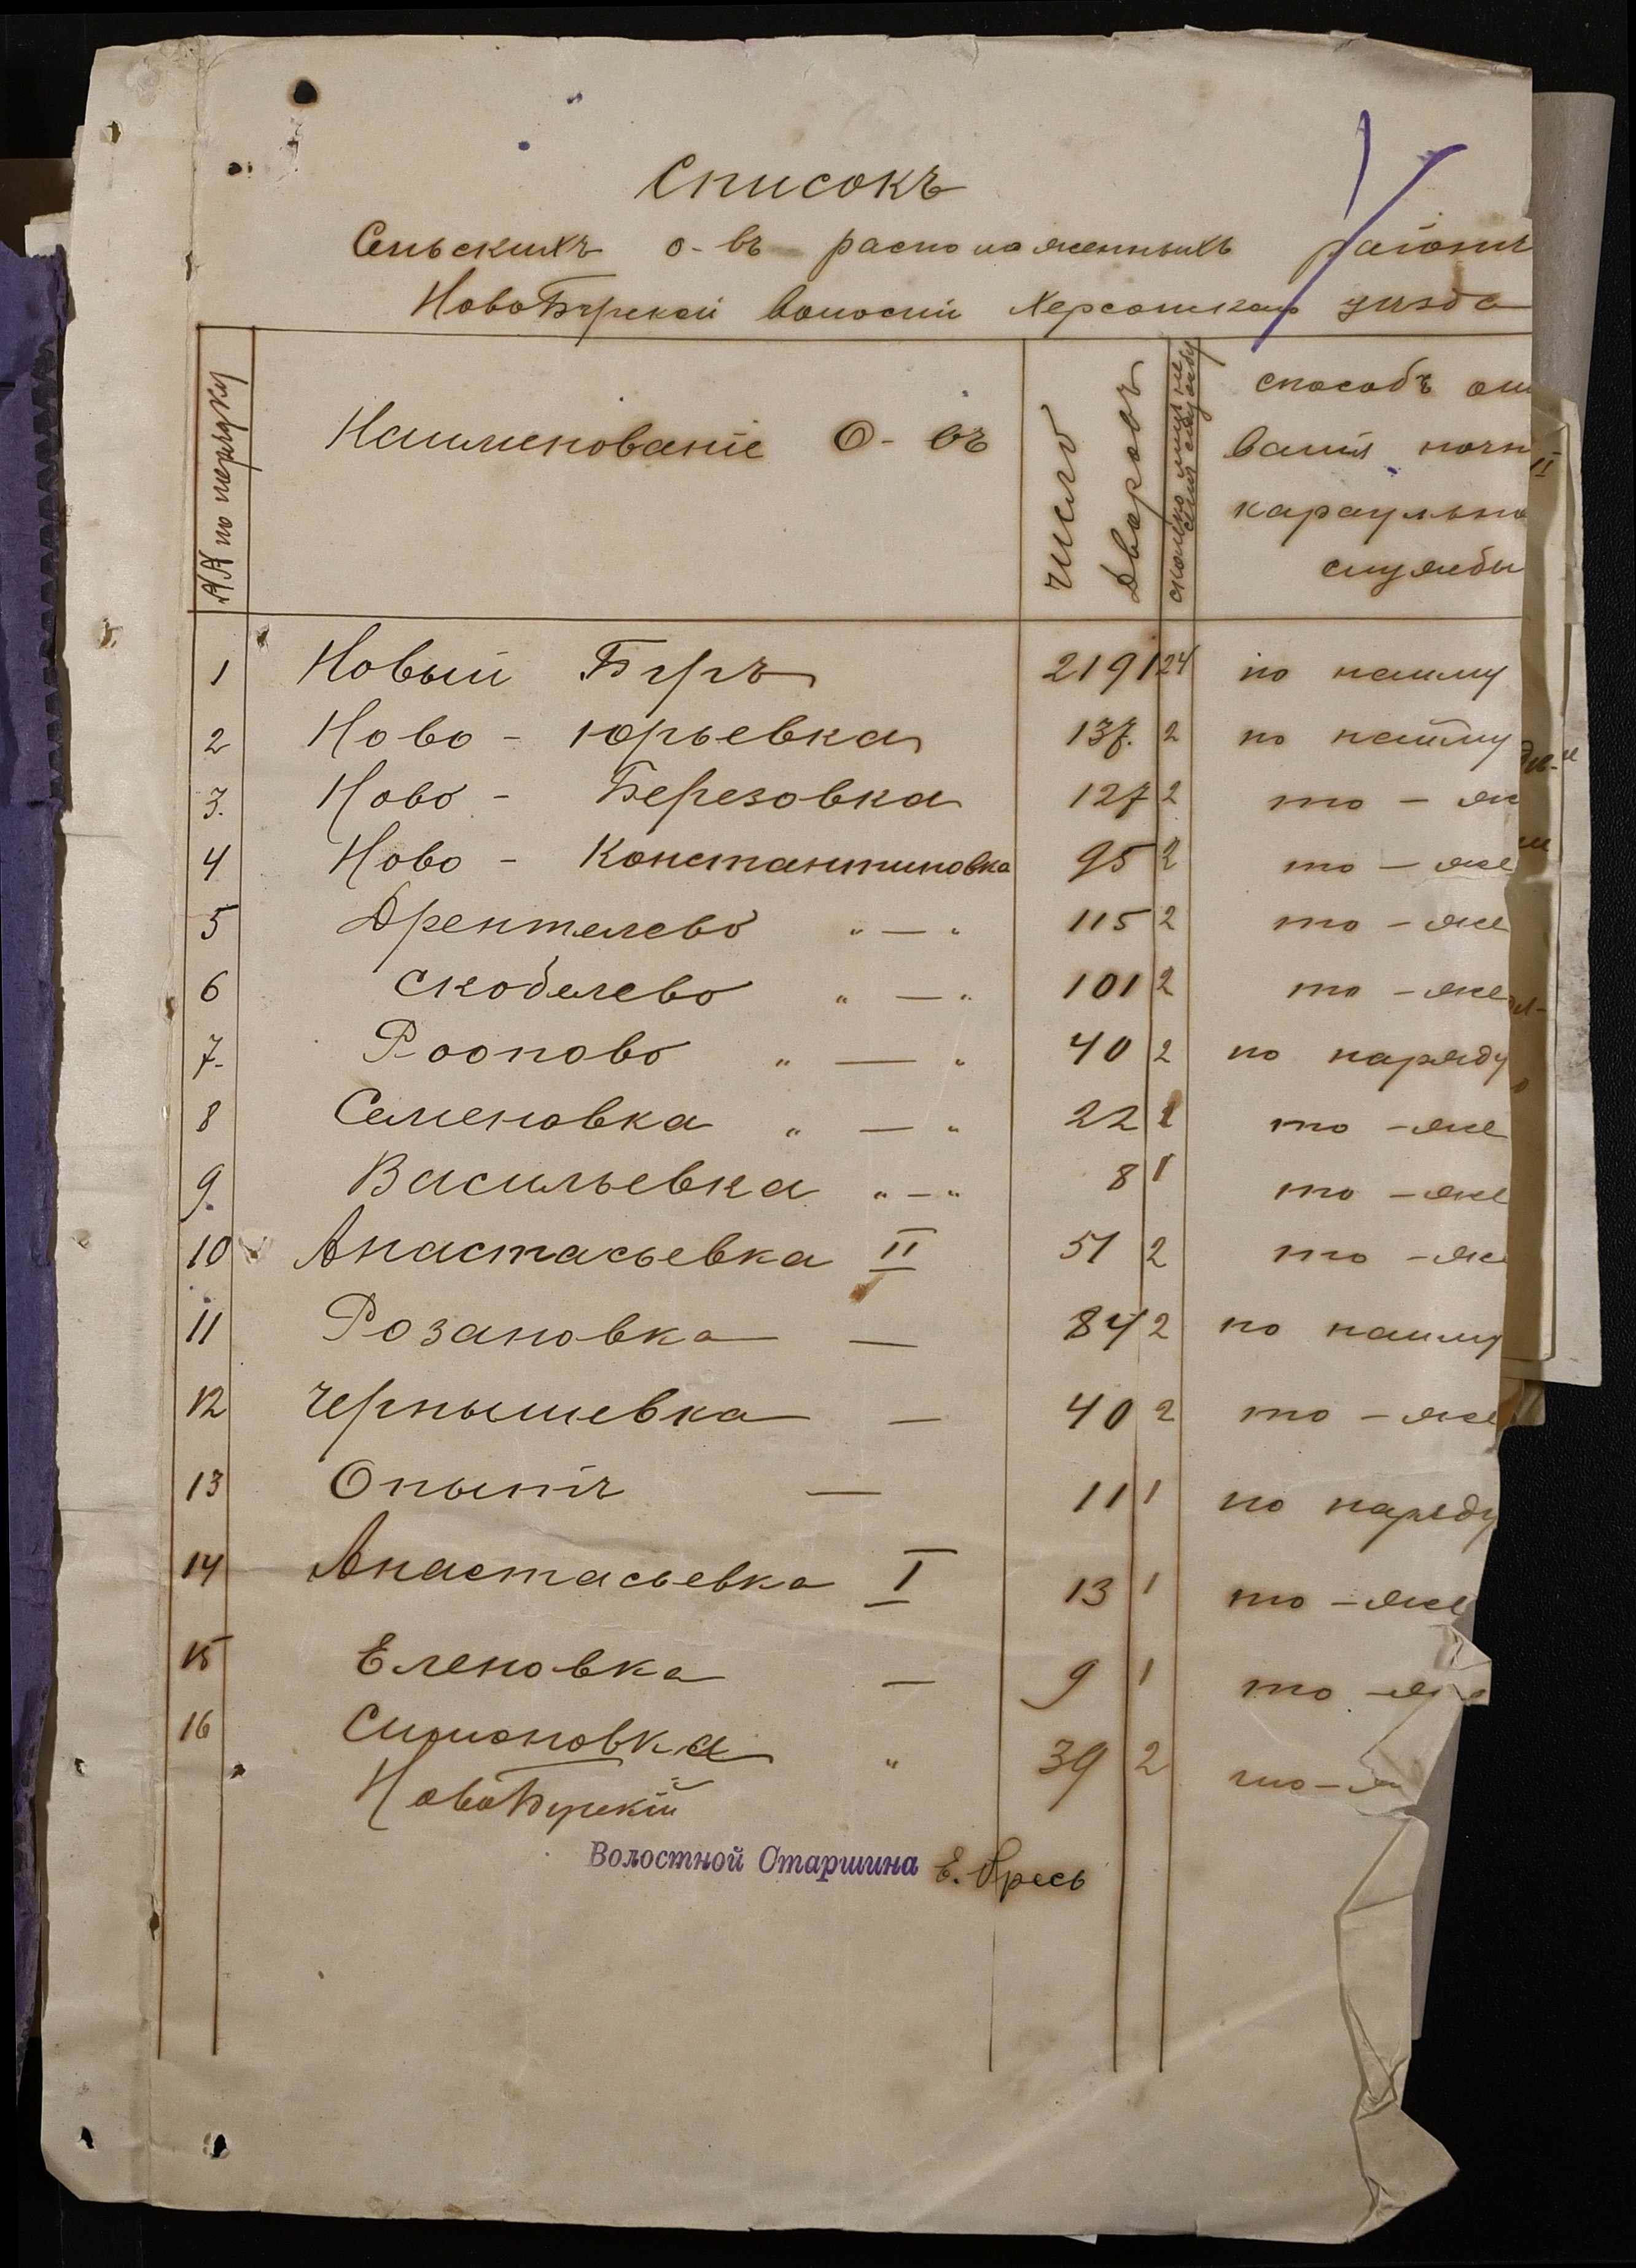 Списокъ
Сельскихъ о-въ расположенныхъ районѣ
НовоБугской волости Херсонскаго уѣзда
№№ по порядку
Наименованіе О-въ
число Дворовъ
сколько лицъ не сетъ службу
способъ отб
ванія ночн
караульно
службы
1 Новый Бугъ 2191 24 по найму
2 Ново - Юрьевка 137. 2 по найму
3. Ново - Березовка 127 2 то - же
4 Ново - Константиновка 95 2 то - же
5 Дрентелево " — " 115 2 то - же
6 Скобелево " — " 101 2 то - же
7. Роопово " — " 40 2 по наряду
8 Семеновка " — " 22 1 то - же
9. Васильевка " — " 8 1 то - же
10 Анастасьевка II 51 2 то - же
11 Розановка — 84 2 по найму
12 Чернышевка — 40 2 то - же
13 Опытъ — 11 1 по наряду
14 Анастасьевка I 13 1 то - же
15 Еленовка — 9 1 то - же
16 Симоновка " 39 2 то - же
НовоБугскій
Волостной Старшина Е.